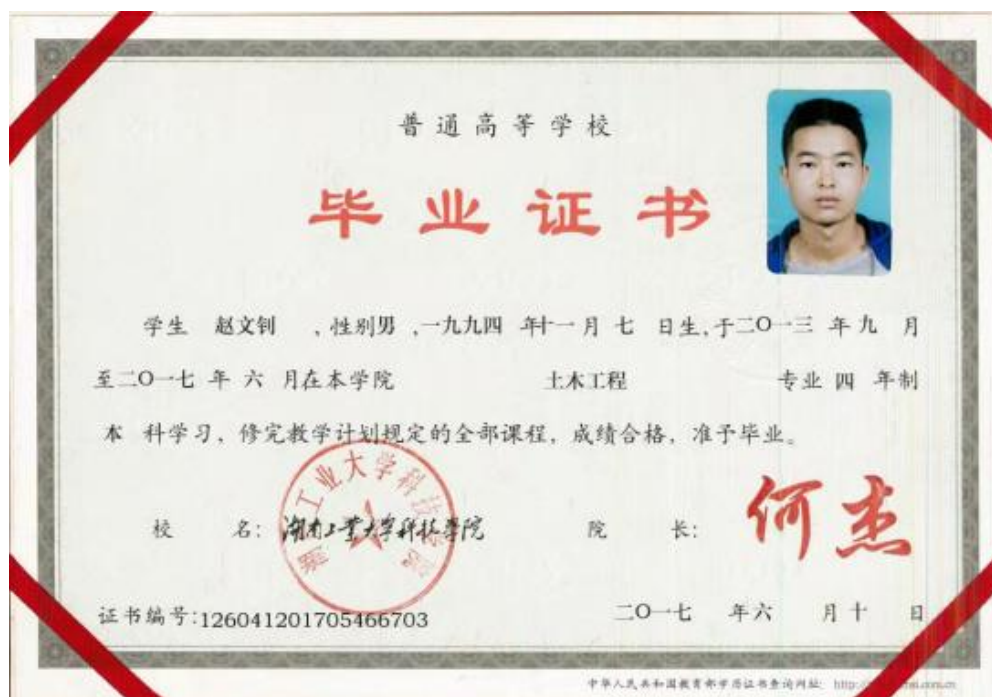 普通高等学校
毕业证书
学生 赵文钊 ，性别男，一九九四 年十一月 七 日生，于二〇一三 年 九 月
至二〇一七 年 六 月在本学院 土木工程 专业 四 年制
本 科学习，修完教学计划规定的全部课程，成绩合格，准予毕业。
工业大学科技学院
校 名：湖南工业大学科技学院 院 长：何杰
证书编号：126041201705466703 二〇一七 年六 月十 日
中华人民共和国教育部学历证书查询网址：http://